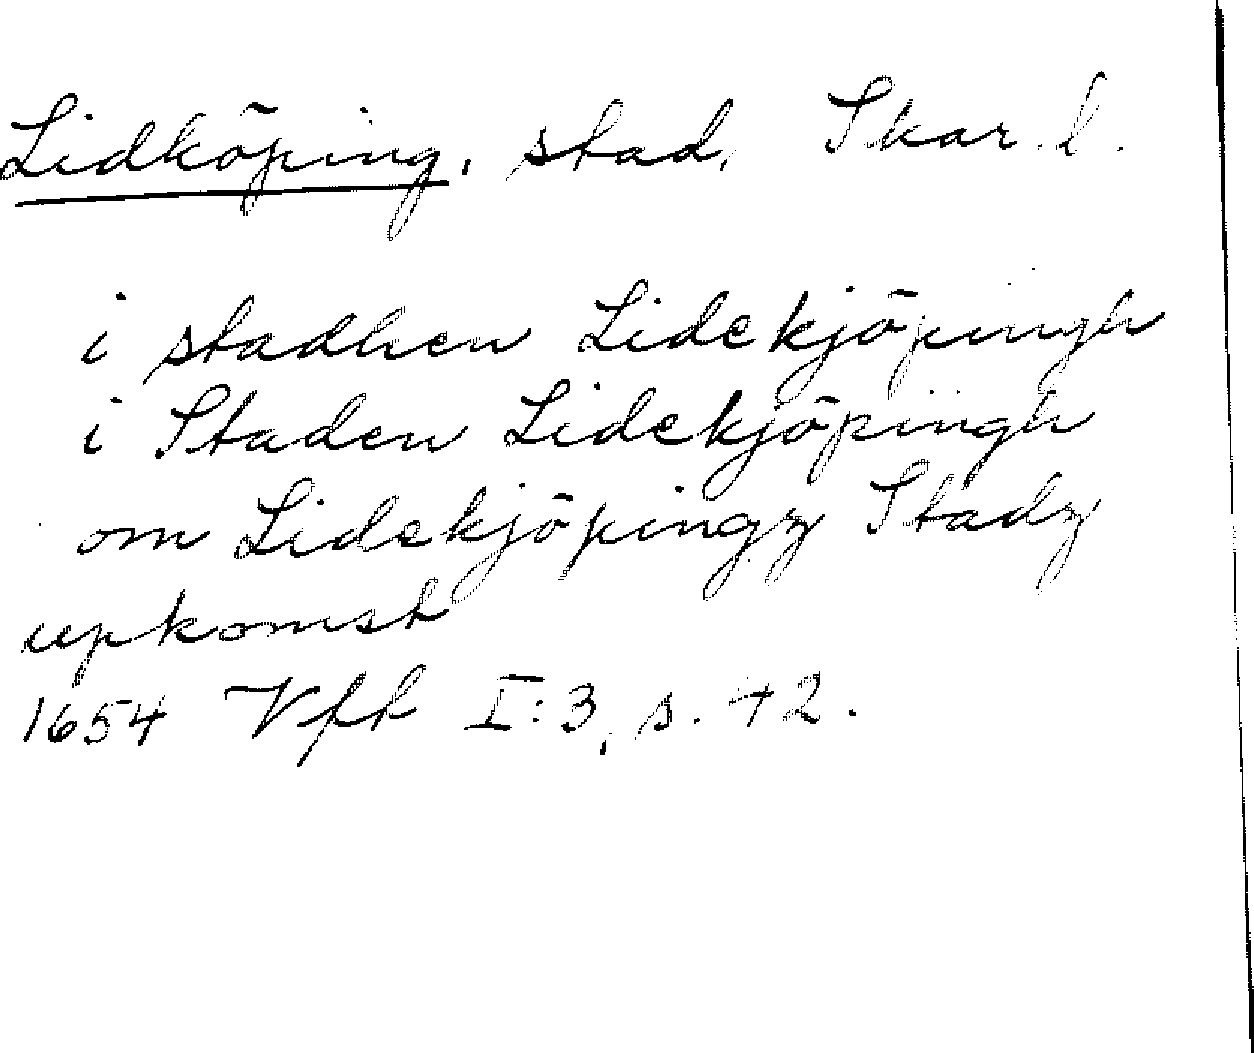 Lidköping, stad, Skar. l.
i stadhen Lidekjöpingh
i Staden Lidekjöpiingh
om Lidekjöpingz Stadz
upkomst
1654 Vfk I:3, s. 42.